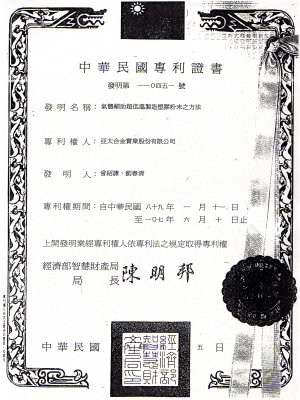 中華民國專利證書
發明第 一一〇四五一 號
發明名稱：氣體輔助超低溫製造塑膠粉末之方法
專利權人：亞太合金實業股份有限公司
發明人：曾紹謙、劉春
專利權期間：自中華民國 八十九年 一月 十一日
至 一〇七年 六月 十日止
上開發明業經專利權人依專利法之規定取得專利權
經濟部智慧財產局
局長 陳明邦
中華民國 五 日